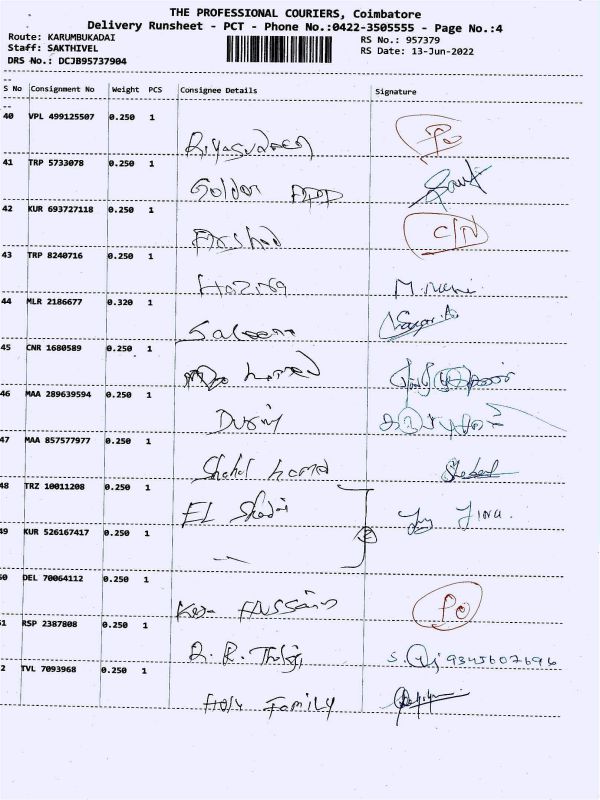 THE PROFESSIONAL COURIERS, Coimbatore
Delivery Runsheet - PCT - Phone No.:0422-3505555 - Page No.:4
Route: KARUMBUKADAI
RS No.: 957379
Staff: SAKTHIVEL
RS Date: 13-Jun-2022
DRS No.: DCJB95737904
S No Consignment No Weight PCS Consignee Details Signature
40 VPL 499125507 0.250 1
Po
41 TRP 5733078 0.250 1
Golden APP
42 KUR 693727118 0.250 1
Arshad C/N
43 TRP 8240716 0.250 1
M.
44 MLR 2186677 0.320 1
Saleena
45 CNR 1680589 0.250 1
46 MAA 289639594 0.250 1
47 MAA 857577977 0.250 1
Shahul hamed
48 TRZ 10011208 0.250 1
EL Shadai
49 KUR 526167417 0.250 1
50 DEL 70064112 0.250 1
Po
51 RSP 2387808 0.250 1
S. 9345607696
2 TVL 7093968 0.250 1
Holy Family